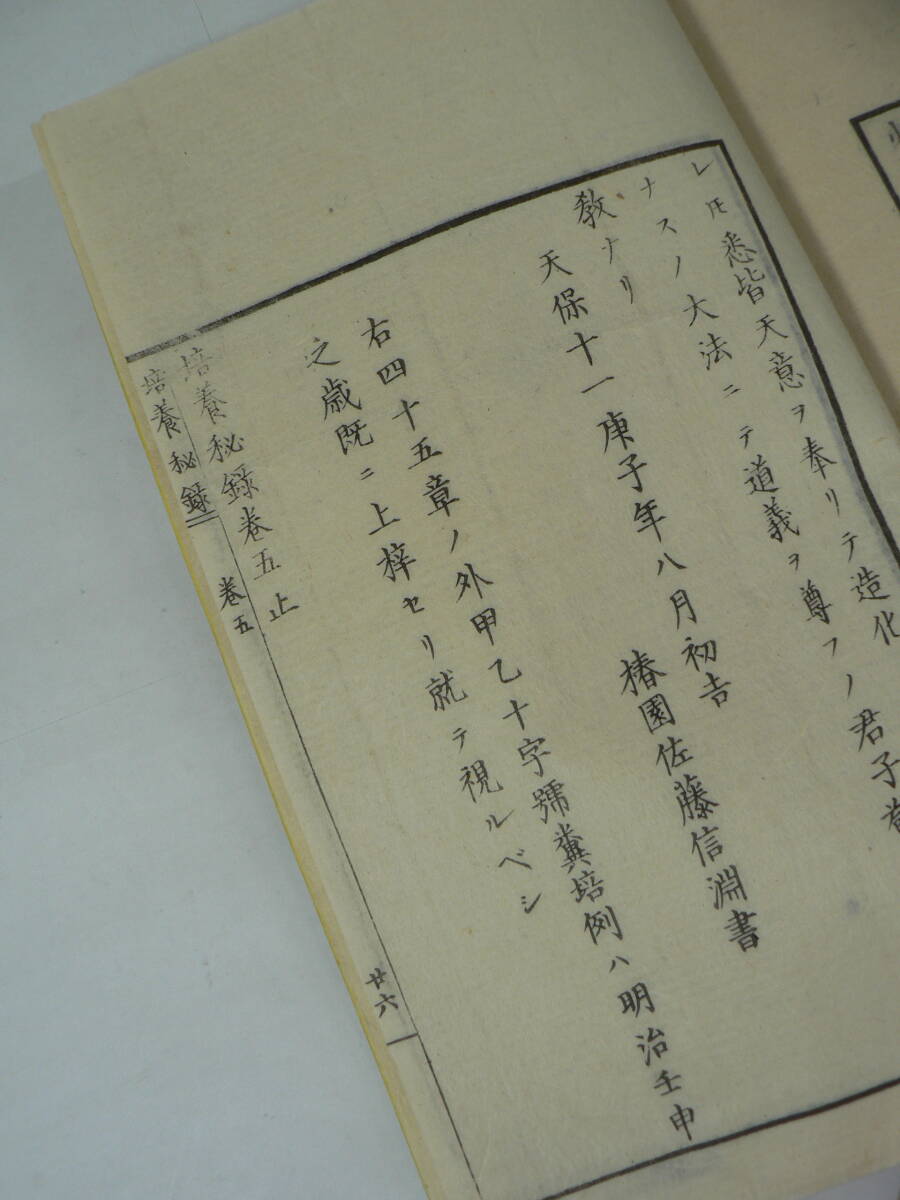 レ𪜈悉皆天意ヲ奉リテ造化
ナスノ大法ニテ道義ヲ尊フノ君子
教ナリ
天保十一庚子年八月初吉
椿園佐藤信淵書
右四十五章ノ外甲乙十字號糞培例ハ明治壬申
之歳既ニ上梓セリ就テ視ルベシ
培養秘録巻五止
培養秘録
巻五
廿六